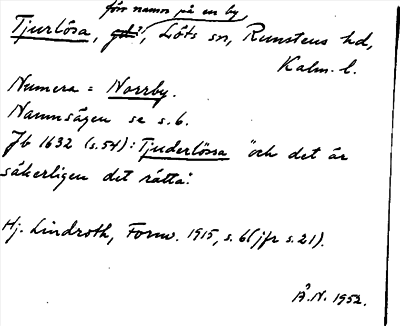 förr namn på en by
Tjurlösa, gd?, Löts sn, Runstens hd,
Kalm. l.
Numera = Norrby.
Namnsägen se s. 6.
Jb 1632 (s. 54): Tjuderlössa "och det är
säkerligen det rätta".
Hj. Lindroth, Fornv. 1915, s. 6 (jfr s. 21).
Å. N. 1952.